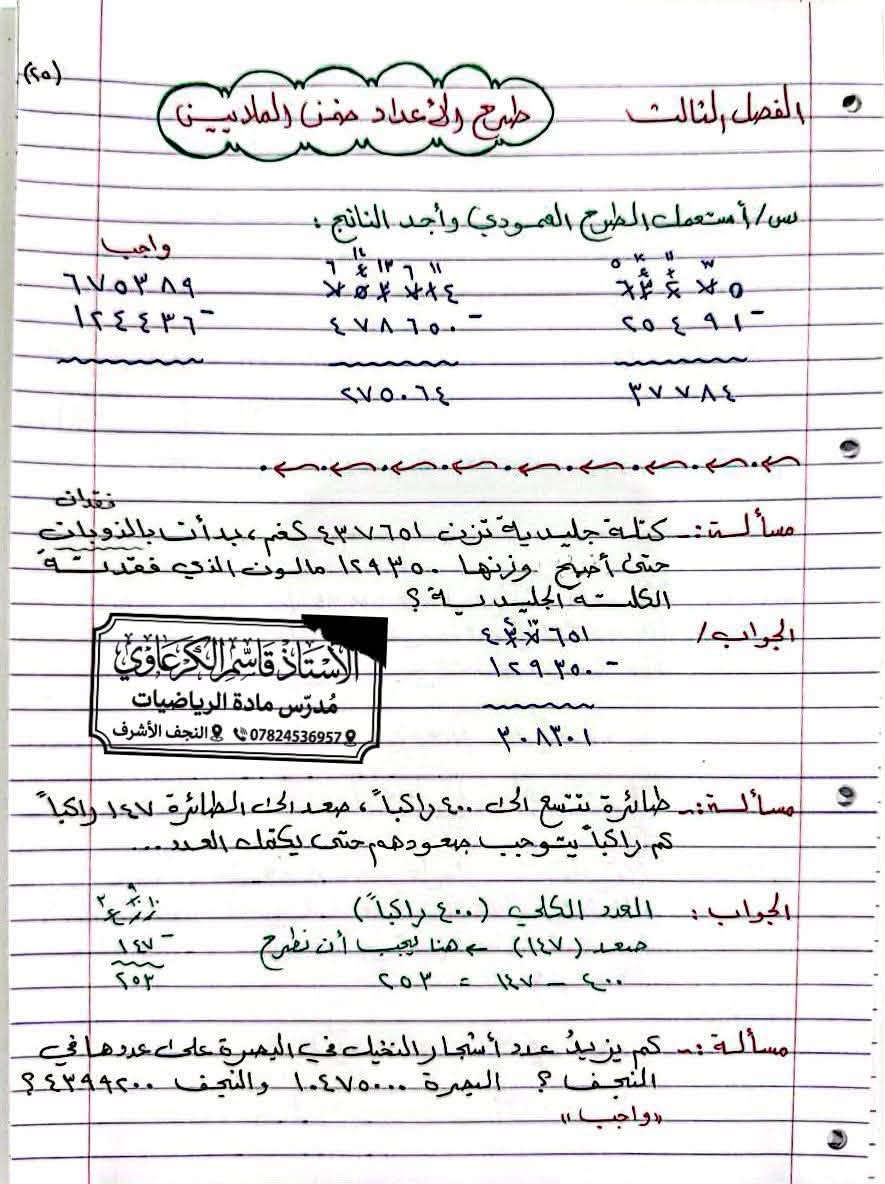 (٢٥)
الفصل الثالث
طرح الأعداد ضمن الملايين
س/أستعمل الطرح العمودي وأجد الناتج :
واجب
٥ ١٢ ١١ ١٣
٦ ١٤ ١٣ ٦ ١١
٦٣٢٧٥
٧٥٣٧١٤
٦٧٥٣٨٩
٢٥٤٩١ -
٤٧٨٦٥٠ -
١٢٤٤٣٦ -
٣٧٧٨٤
٢٧٥٠٦٤
فقدان
مسألة :- كتلة جليدية تزن ٤٣٧٦٥١ كغم ، بدأت بالذوبان
حتى أصبح وزنها ١٢٩٣٥٠ مالوزن الذي فقدتة
الكلتة الجليدية ؟
الجواب /
٤٣٧٦٥١
١٢٩٣٥٠ -
٣٠٨٣٠١
الأستاذ قاسم الكرعاوي
مدرّس مادة الرياضيات
07824536957 النجف الأشرف
مسألة :- طائرة تتسع الى ٤٠٠ راكباً ، صعد الى الطائرة ١٤٧ راكباً
كم راكباً يتوجب صعودهم حتى يكتمل العدد ...
الجواب : العدد الكلي (٤٠٠ راكباً)
صعد (١٤٧) ← هنا يجب أن نطرح
٤٠٠ - ١٤٧ = ٢٥٣
٣ ٩ ١٠
٤٠٠
١٤٧ -
٢٥٣
مسألة :- كم يزيدُ عدد أشجار النخيل في البصرة على عددها في
النجف ؟ البصرة ١٠٤٧٥٠٠٠ والنجف ٤٣٩٩٢٠٠ ؟
"واجب"